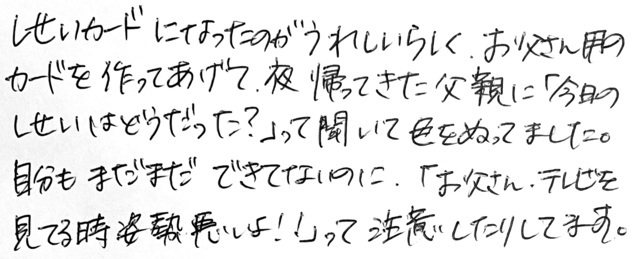 しせいカードになったのがうれしいらしく、お父さん用の
カードを作ってあげて、夜帰ってきた父親に「今日の
しせいはどうだった?」って聞いて色をぬってました。
自分もまだまだできてないのに、「お父さん、テレビを
見てる時姿勢悪いよ!!」って注意したりしてます。